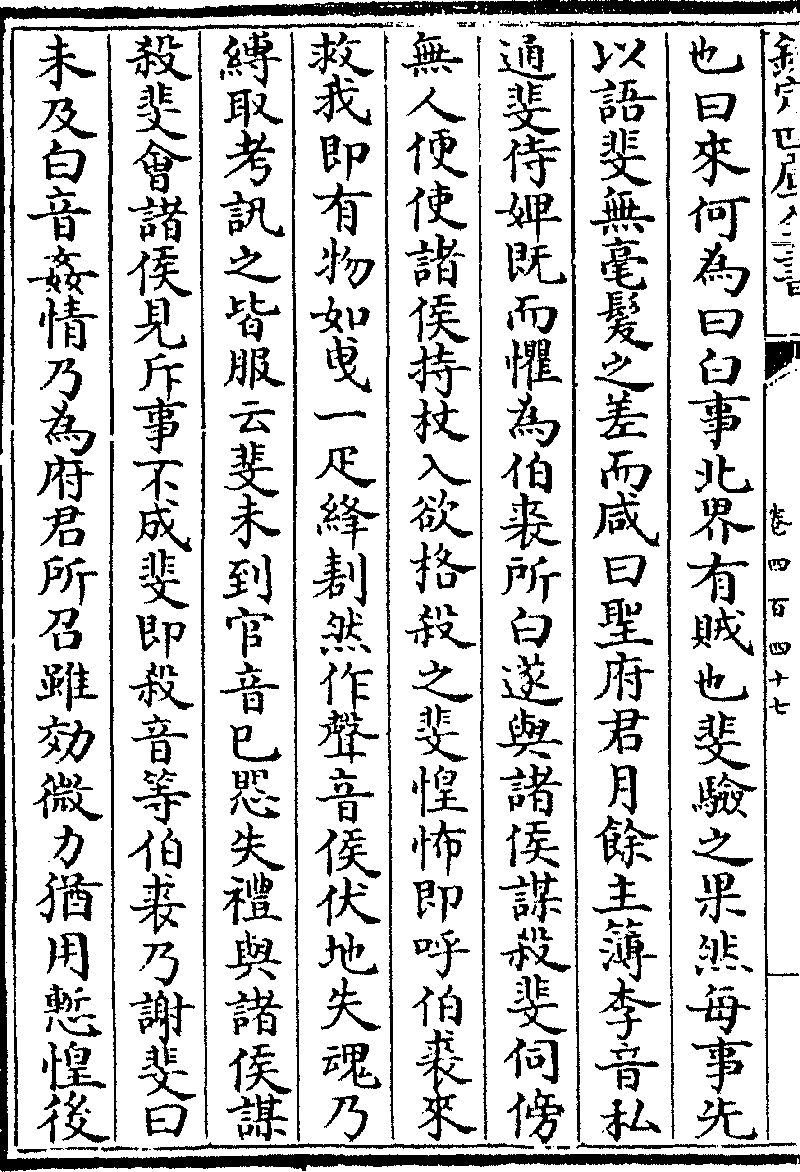 欽定四庫全書
卷四百四十七
也曰來何為曰白事北界有賊也斐驗之果然每事先
以語斐無毫髮之差而咸曰聖府君月餘主簿李音私
通斐侍婢既而懼為伯裘所白遂與諸侯謀殺斐伺傍
無人便使諸侯持杖入欲格殺之斐惶怖即呼伯裘來
救我即有物如曳一疋絳剨然作聲音侯伏地失魂乃
縛取考訊之皆服云斐未到官音已恐失禮與諸侯謀
殺斐會諸侯見斥事不成斐即殺音等伯裘乃謝斐曰
未及白音姦情乃為府君所召雖効微力猶用慙惶後